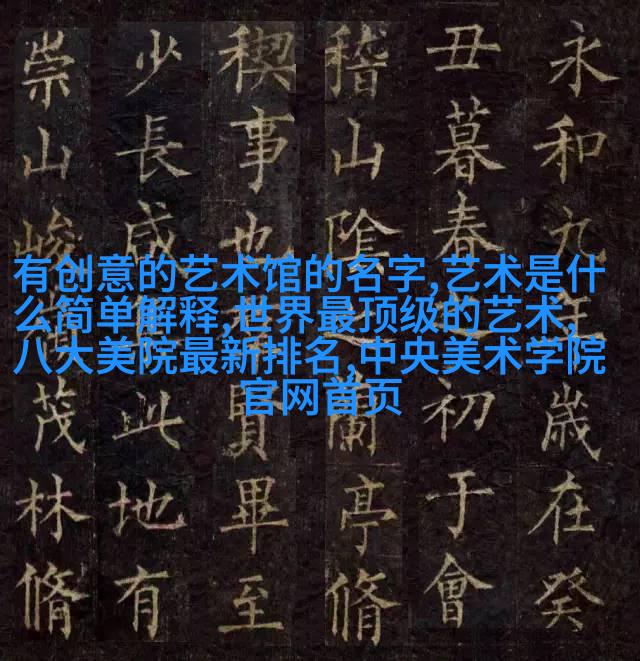 永和九歲在癸
丑暮春初于會
稽山陰蘭亭脩
稧事也賢畢至
少長咸此地有
崇山峻茂林脩
有创意的艺术馆的名字,艺术是什
么简单解释,世界最顶级的艺术,
八大美院最新排名,中央美术学院
官网首页